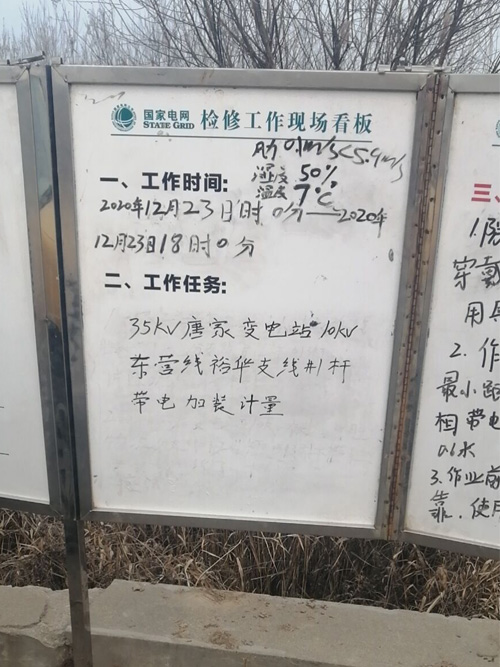 国家电网
STATE GRID
检修工作现场看板
风力 0.1m/s<5.9m/s
湿度 50%
温度 7℃
一、工作时间:
2020年12月23日 时 0分——2020年
12月23日18时0分
二、工作任务:
35KV唐家变电站10KV
东营线裕华支线#1杆
带电加装计量
三、
1.
穿戴
用具
2. 作
最小距
相带电
0.6米
3.作业前
靠,使用